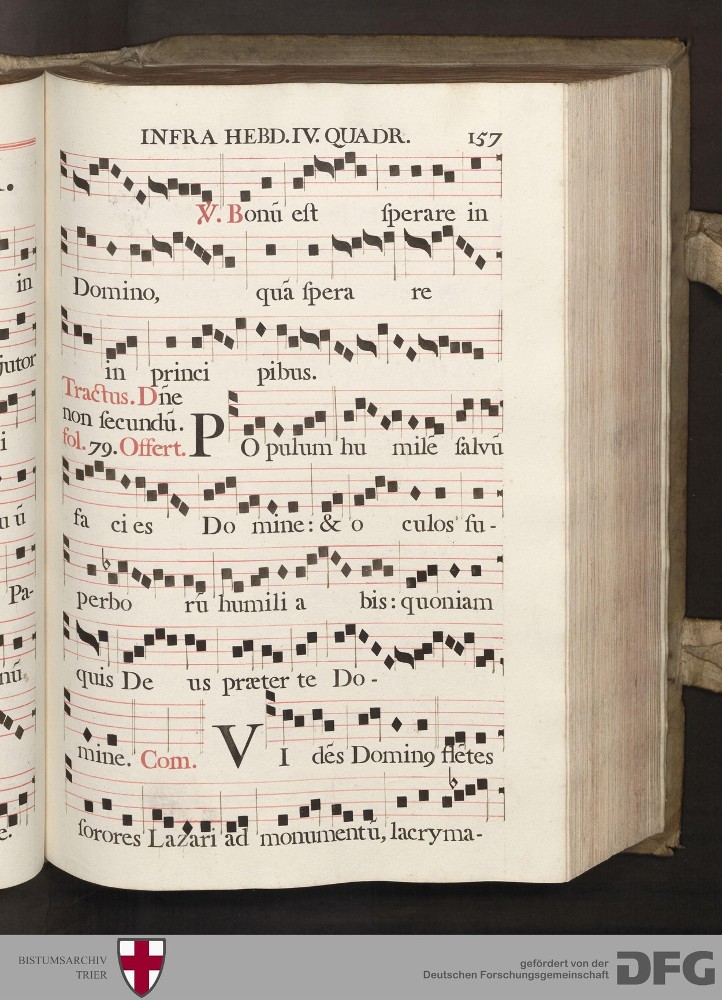 INFRA HEBD. IV. QUADR. 157
℣. Bonũ est sperare in
Domino, quã spera re
in princi pibus.
Tractus. Dñe
non secundũ.
fol. 79. Offert. P O pulum hu milẽ salvũ
fa ci es Do mine: & o culos su-
perbo rũ humili a bis: quoniam
quis De us præter te Do-
mine. Com. V I dẽs Dominꝰ flẽtes
sorores Lazari ad monumentũ, lacryma-
in
jutor
i
u ũ
Pa-
nũ
e.
BISTUMSARCHIV
TRIER
gefördert von der
Deutschen Forschungsgemeinschaft
DFG